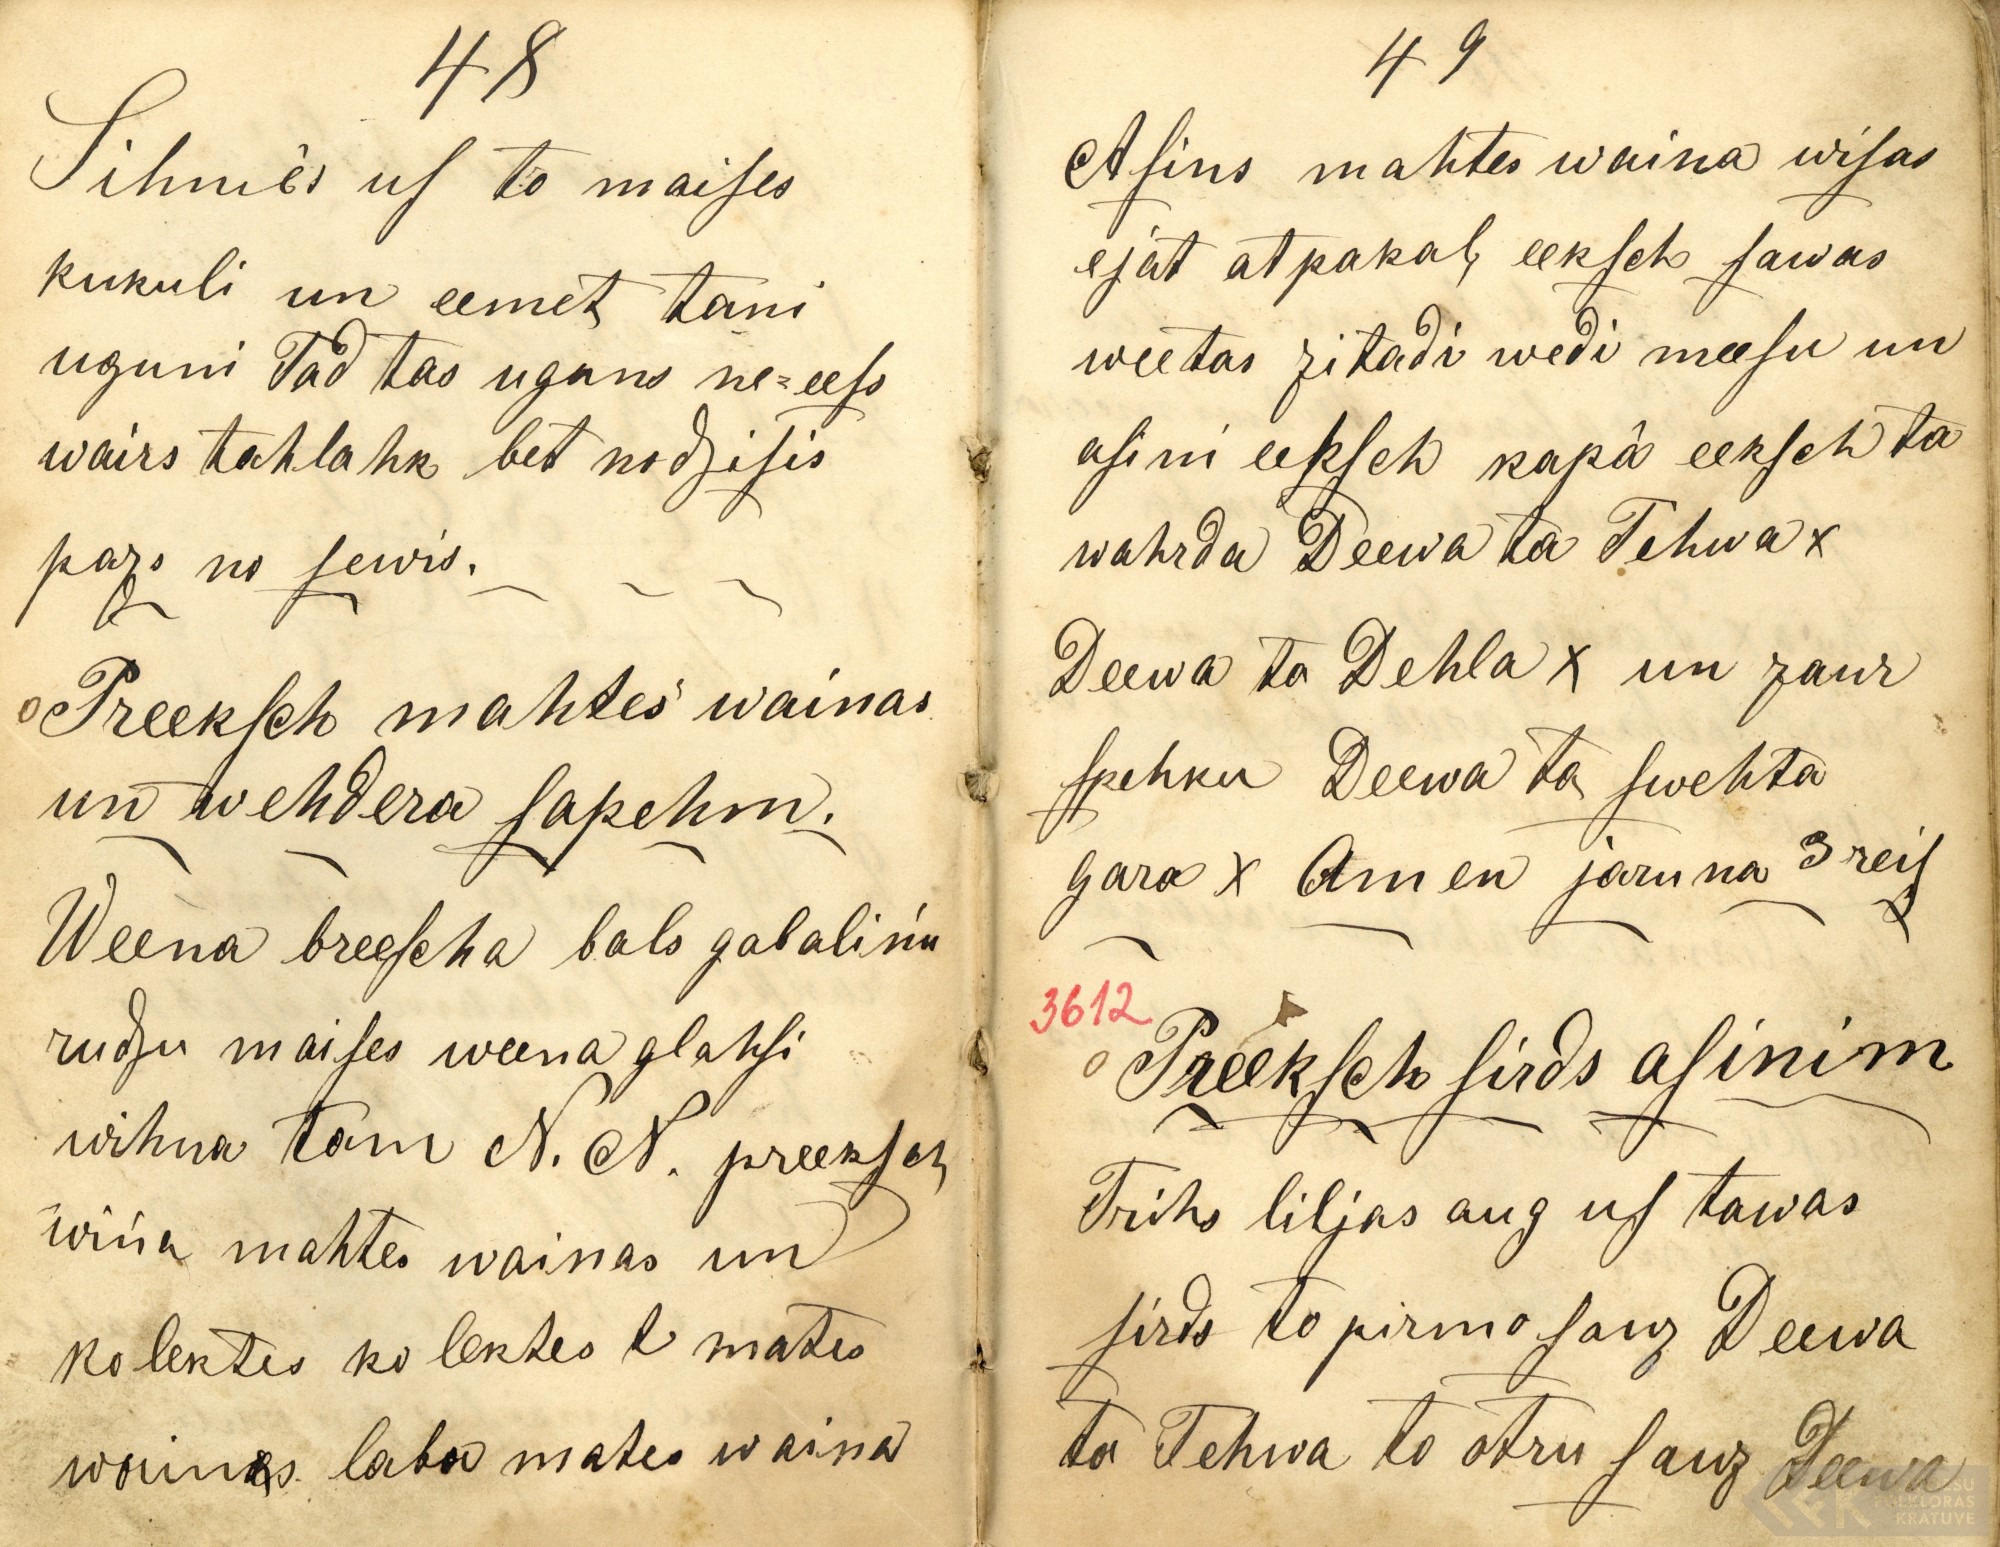 48
Sihmės uſ to maiſes
kukuli un eemet tani
uguni Tad tas uguns ne=eeſs
wairs tahlahk bet nodziſis
pazs no ſewis.
Preekſch mahtes wainas
un wehdera ſapehm.
Weena breeſcha bals gabaliņu
rudzu maiſes weena glahſi
wihna tam N. N. preekſch
wiņa mahtes wainas un
kolektes kolektes t mates
wainas laba mates waina
49
Aſins mahtes waina wiſas
ejat atpakaļ eekſch ſawas
weetas zitadi wedi meeſu un
aſini eekſch kapâ eekſch ta
wahrda Deewa ta Tehwa x
Deewa ta Dehla x un zaur
ſpehku Deewa ta ſwehta
gara x Amen jaruna 3 reiſ
3612
Preekſch ſirds aſinim
Trihs liljas aug uſ tawas
ſirds to pirmo ſauz Deewa
ta Tehwa to otru ſauz Deewa
KRATUVE